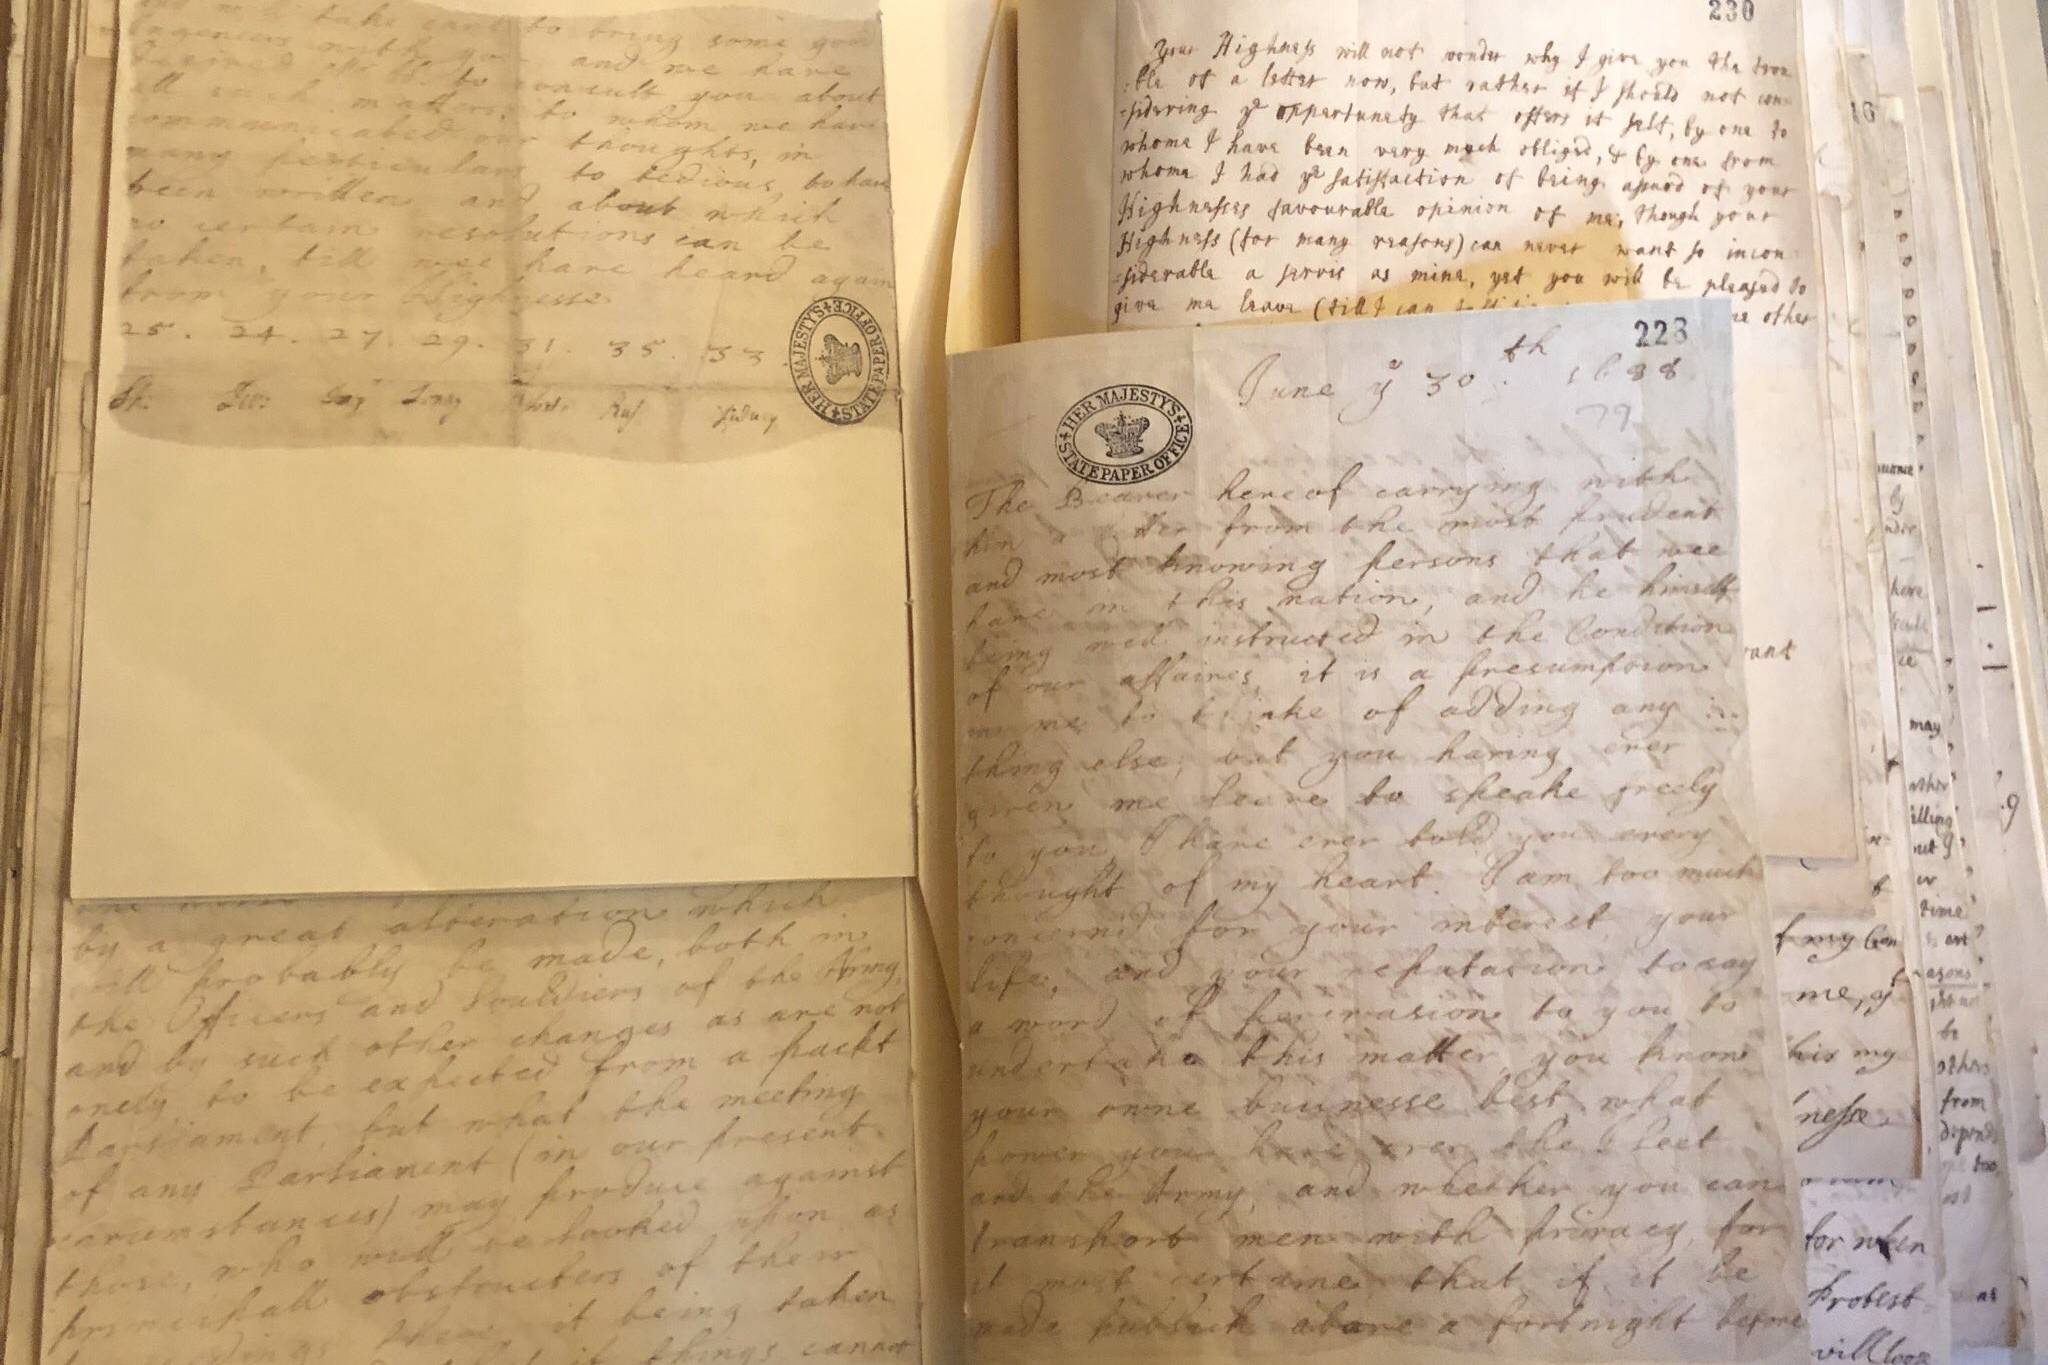 will take care to bring some good
Ingeniers with you and we have
desired Mr H. to consult you about
all such matters, to whom we have
communicated our thoughts, in
many perticulars to tedious, to have
been written and about which
no certain resolutions can be
taken, till wee have heard again
from your Highnesse
25. 24. 27. 29. 31. 35. 33
Sh: Dev: Danby Lumley London Rus Sidney
HER MAJESTY'S STATE PAPER OFFICE
by a great alteration which
will probably be made, both in
the Officers and Souldiers of the Army,
and by such other changes as are not
onely to be expected from a packt
Parliament, but what the meeting
of any Parliament (in our present
circumstances) may produce against
those, who will be looked upon as
principall obstructers of their
proceedings there, it being taken
if things cannot
230
Your Highness will not wonder why I give you the trou
-ble of a letter now, but rather if I should not con-
-sidering ye opportunety that offers it self, by one to
whome I have been very much obliged, & by one from
whome I had ye satisfaction of being assured of your
Highnesses favourable opinion of me; though your
Highness (for many reasons) can never want so incon-
-siderable a servis as mine, yet you will be pleased to
give me leave (till I can
other
228
June ye 30th. 1688
79
HER MAJESTY'S STATE PAPER OFFICE
The Bearer hereof carrying with
him a letter from the most prudent
and most knowing persons that wee
have in this nation, and he himselfe
being well instructed in the Condition
of our affaires, it is a presumption
in me to thinke of adding any
thing else; but you having ever
given me leave to speake freely
to you, I have ever told you every
thought of my heart. I am too much
concerned for your interest, your
life, and your reputation, to say
a word of perswasion to you to
undertake this matter, you know
your owne buisnesse best, what
power you have over the Fleet
and the Army, and whether you can
transport men with privacy, for
it most certaine that if it be
made publick above a fortnight before
16
vant
f my Con
me, of
his my
nesse
for when
Protest
will loose
may
time
be
others
from
depends
too
as